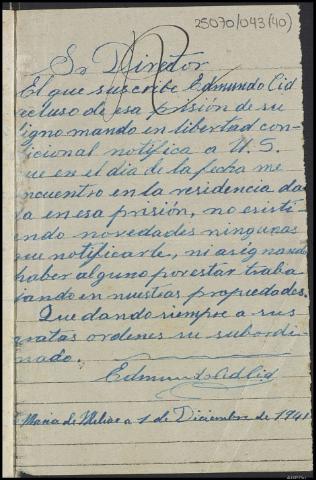 25070/043(40)
Sr Director
El que suscribe Edmundo Cid
recluso de esa prisión de su
digno mando en libertad con-
dicional notifica a U.S.
que en el dia de la fecha me
encuentro en la residencia da
da en esa prisión, no esisti-
endo novedades ningunas
que notificarle, ni asignando
haber alguno por estar traba
jando en nuestras propiedades.
Quedando siempre a sus
gratas ordenes su subordi-
nado.
Edmundo Cid Cid
Maria de 1 de Diciembre de 1941